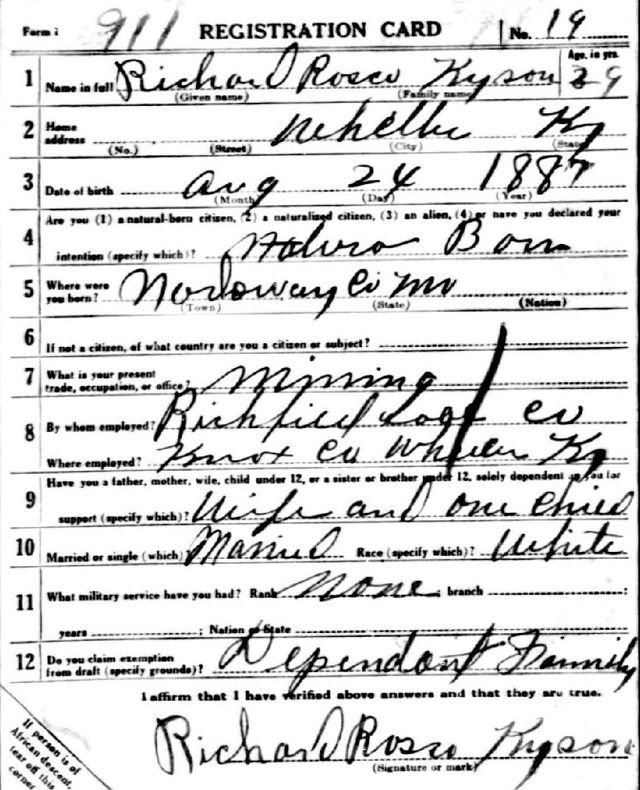 Form 1 911 REGISTRATION CARD No. 19
Age, in yrs.
1 Name in full Richard Rosco Kyson 29
(Given name) (Family name)
2 Home address Ky
(No.) (Street) (City) (State)
3 Date of birth Aug 24 1887
(Month) (Day) (Year)
4 Are you (1) a natural-born citizen, (2) a naturalized citizen, (3) an alien, (4) or have you declared your
intention (specify which)? Born
5 Where were you born? Nodoway Co Mo
(Town) (State) (Nation)
6 If not a citizen, of what country are you a citizen or subject?
7 What is your present trade, occupation, or office? Mining
8 By whom employed? Co
Where employed? Knox Co Ky
9 Have you a father, mother, wife, child under 12, or a sister or brother under 12, solely dependent on you for
support (specify which)? Wife and one Chied
10 Married or single (which) Married Race (specify which)? White
11 What military service have you had? Rank None ; branch ;
years ; Nation or State
12 Do you claim exemption from draft (specify grounds)? Dependant Family
I affirm that I have verified above answers and that they are true.
Richard Rosco Kyson
(Signature or mark)
If person is of
African descent,
tear off this
corner